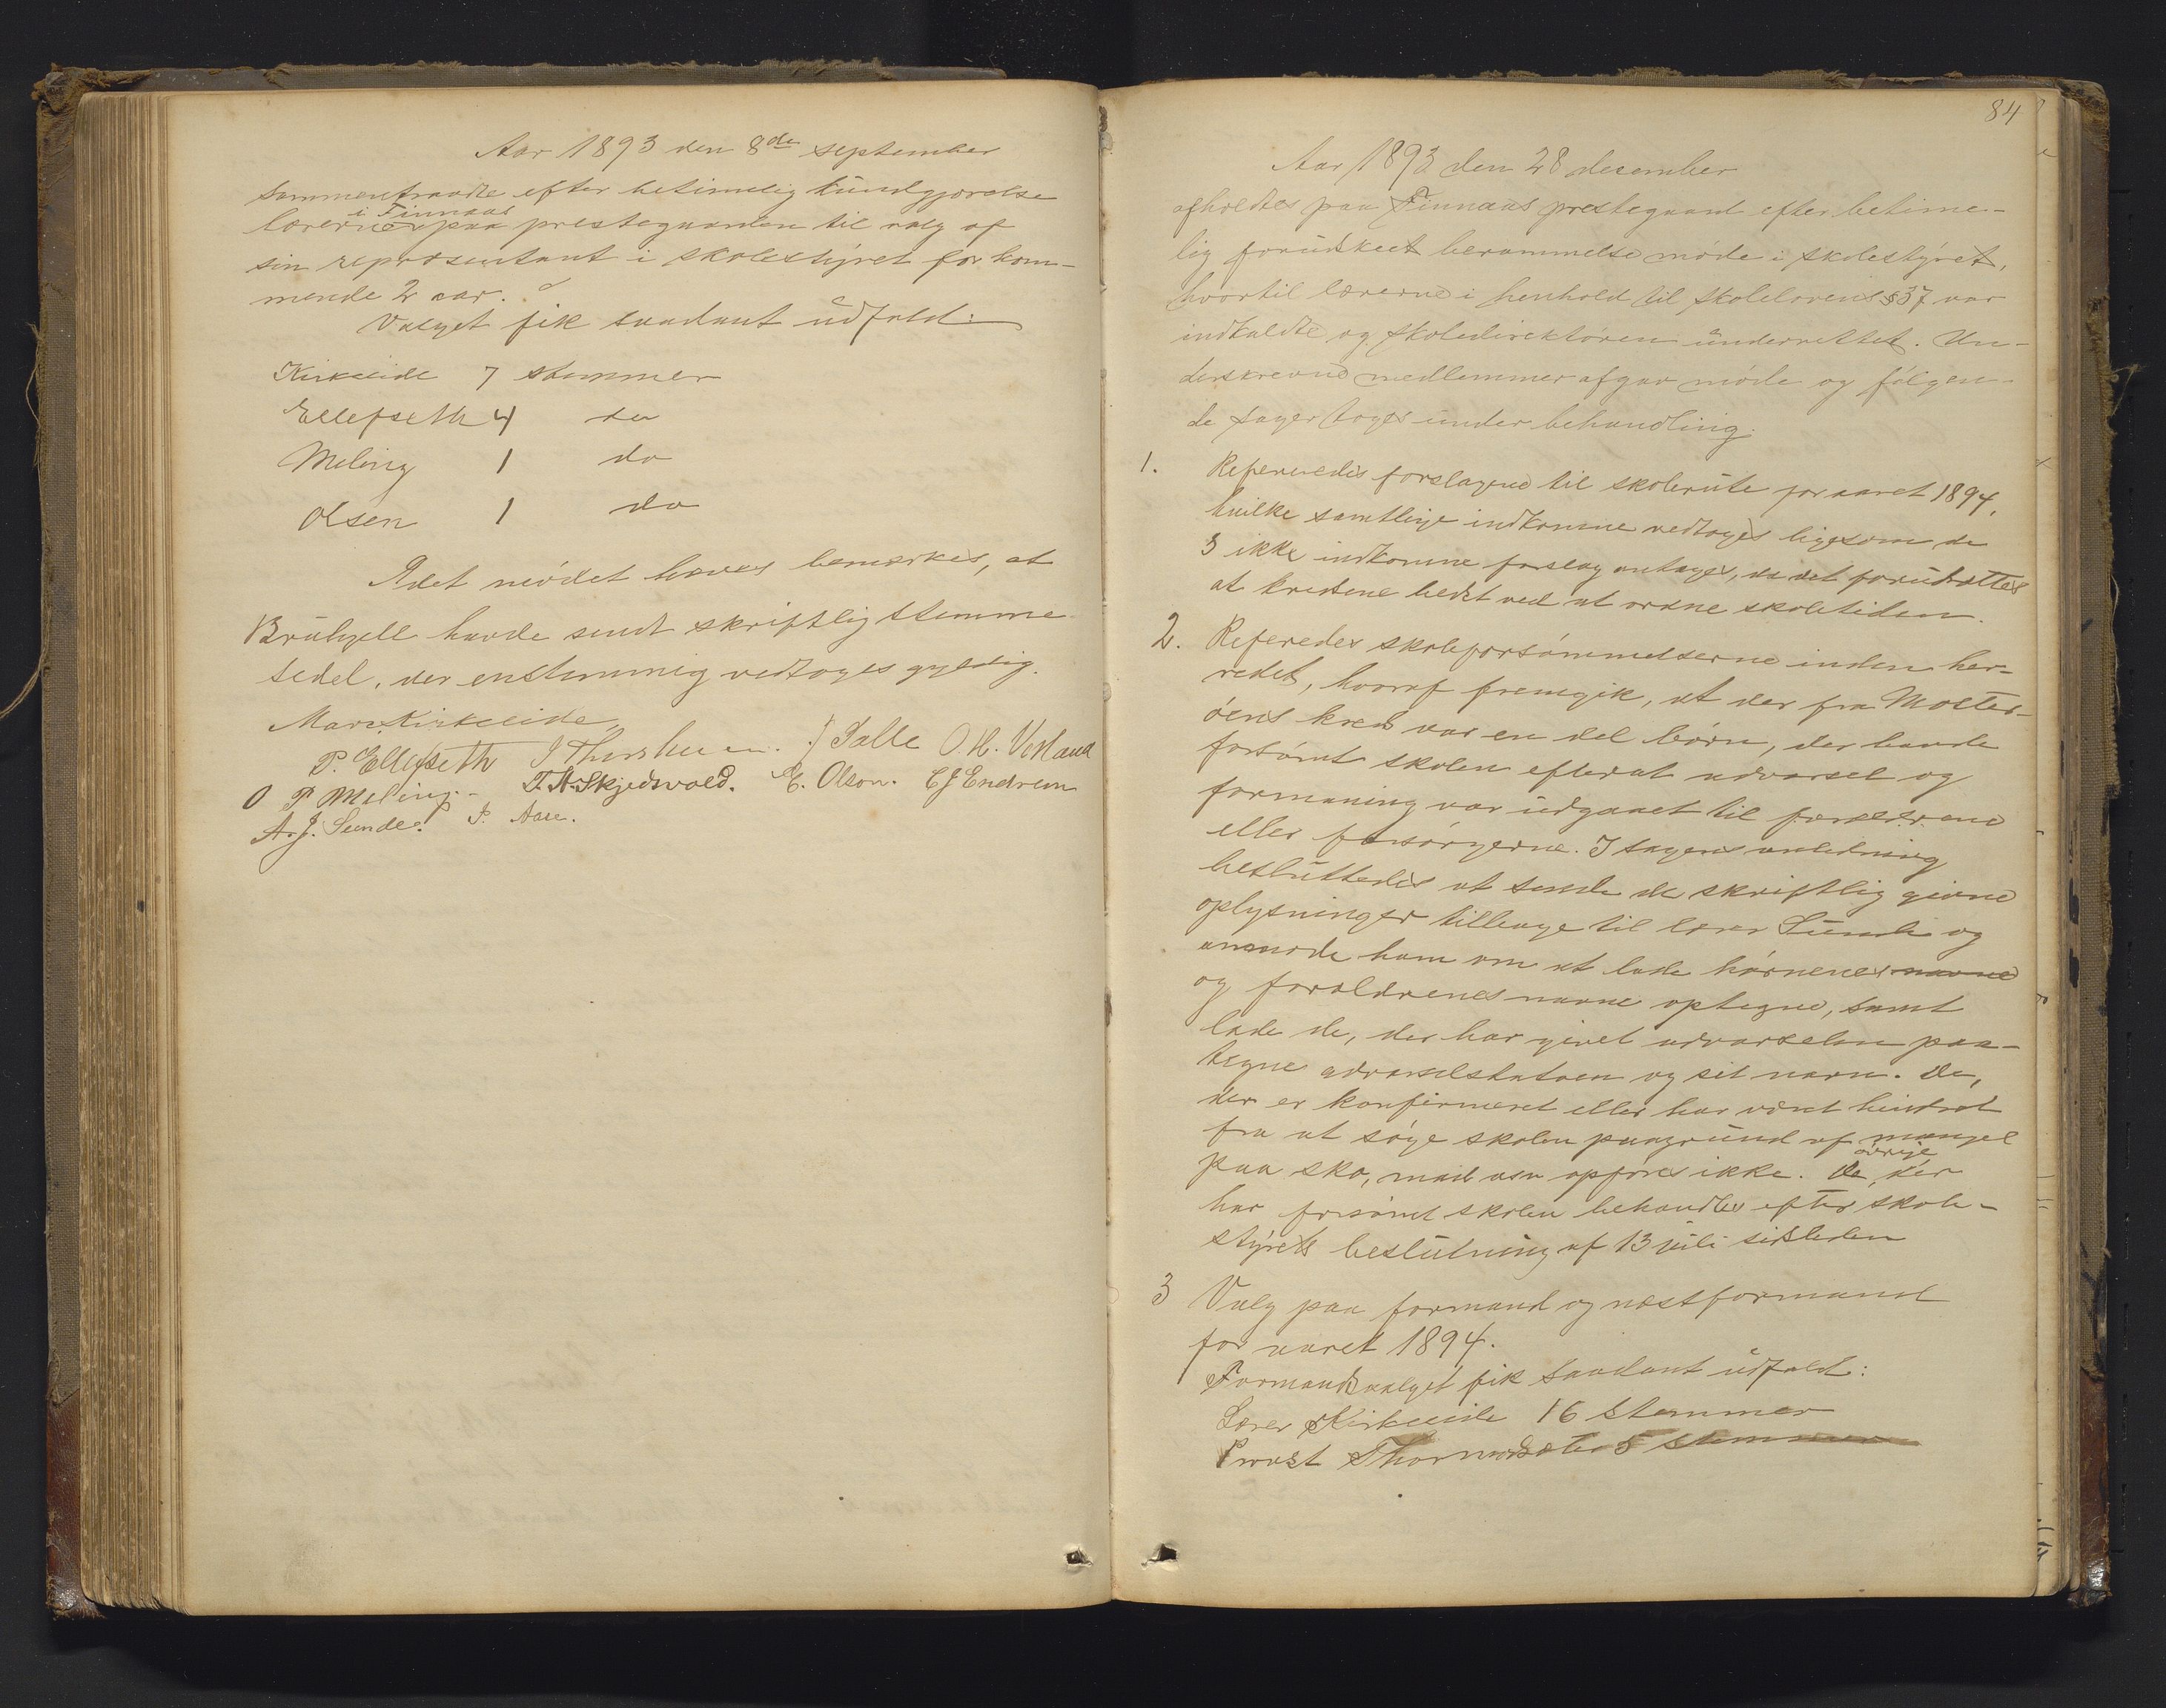 Aar 1893 den 8de september
sammentraadte efter betimelig kundgjørelse
lærerne i Finnaas paa prestegaarden til valg af
sin repræsentant i skolestyret for kom-
mende 2 aar.
Valget fik saadant udfald:
Kirkeeide 7 stemmer
Ellefseth 4 do
Meling 1 do
Olsen 1 do
Adet mödet hæves bemærkes, at
Brühjell havde sendt skriftlig stemme-
sedel, der enstemmig vedtoges gyldig.
Mars. Kirkeeide
P. Ellefseth J Thorsheim. J Salle O. H. Vestland
O P Meling. T. A. Skjedsvold. E. Olson. E J Endresen
A. J. Sunde. P. Aase.
84
Aar 1893 den 28 desember
afholdtes paa Finnaas prestegaard efter betime-
lig forudskeet berammelse møde i skolestyret,
hvortil lærerne i henhold til skolelovens § 37 var
indkaldte og skoledirektøren underrettet. Un-
derskrevne medlemmer afgav møde og følgen-
de sager toges under behandling.
1. Refereredes forslagene til skolerute for aaret 1894,
hvilke samtlige indkomne vedtoges ligesom de
3 ikke indkomne forslag antages, da det forudsættes
at kredsene bedst ved at ordne skoletiden.
2. Referedes skoleforsømmelserne inden her-
redet, hvoraf fremgik, at der fra Moster-
øens kreds var en del børn, der havde
forsømt skolen efterat advarsel og
formaning var udgaaet til forældrene
eller forsørgerne. I sagens anledning
besluttedes at sende de skriftlig givne
oplysninger tilbage til lærer Sunde og
anmode ham om at lade børnenes navne
og forældrenes navne optegne, samt
lade de, der har givet advarselen paa-
tegne advarselsdatoen og sit navn. De,
der er konfirmeret eller har været hindret
fra at søge skolen paagrund af mangel
paa sko, mad osv opføres ikke. De øvrige, der
har forsømt skolen behandles efter skole-
styrets beslutning af 13 juli sidstleden
3 Valg paa formand og næstformand
for aaret 1894.
Formandsvalget fik saadant udfald:
Lærer Kirkeeide 16 stemmer
Provst Thormodsæter 5 stemmer